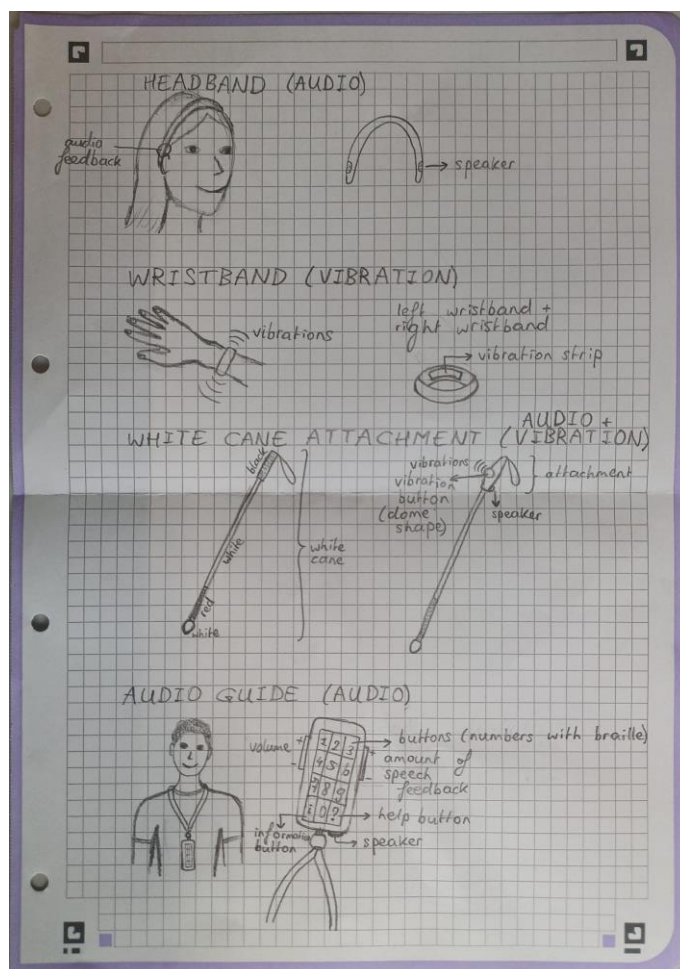 HEADBAND (AUDIO)
audio
feedback
speaker
WRISTBAND (VIBRATION)
vibrations
left wristband +
right wristband
vibration strip
WHITE CANE ATTACHMENT (AUDIO +
VIBRATION)
black
white
red
white
white
cane
vibrations
vibration
button
(dome
shape)
attachment
speaker
AUDIO GUIDE (AUDIO)
volume
+
-
1 2 3
4 5 6
7 8 9
i 0 ?
buttons (numbers with braille)
+
-
amount of
speech
feedback
help button
information
button
speaker